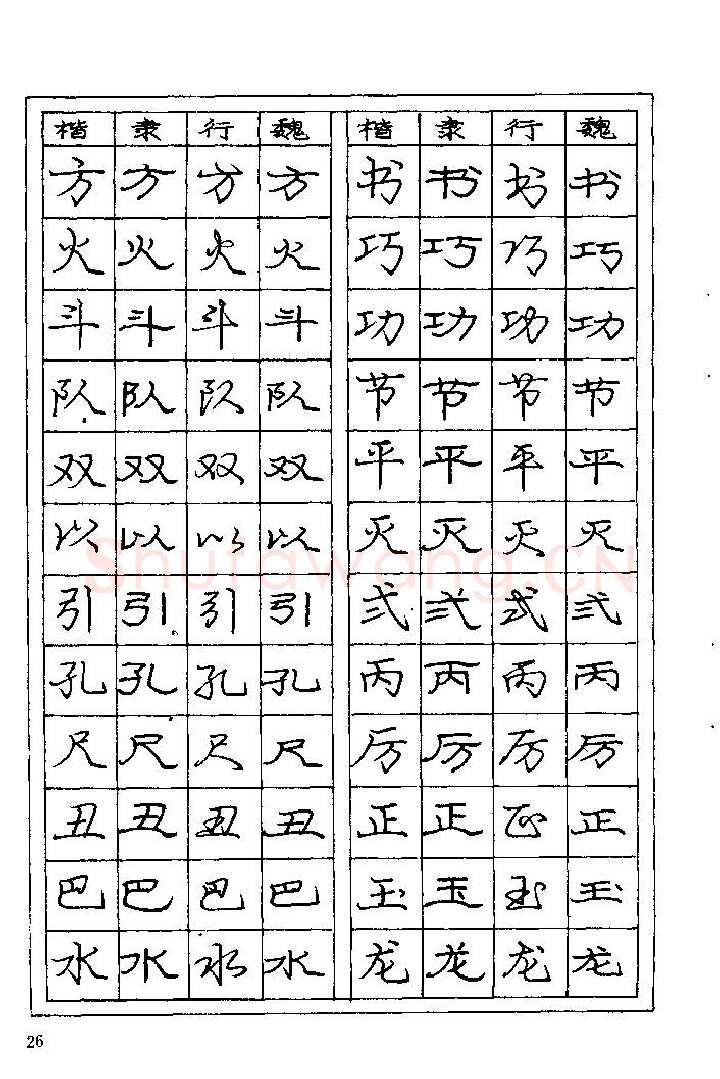 楷 隶 行 魏 楷 隶 行 魏
方 方 方 方 书 书 书 书
火 火 火 火 巧 巧 巧 巧
斗 斗 斗 斗 功 功 功 功
队 队 队 队 节 节 节 节
双 双 双 双 平 平 平 平
以 以 以 以 灭 灭 灭 灭
引 引 引 引 弍 弎 式 弎
孔 孔 孔 孔 丙 丙 丙 丙
尺 尺 尺 尺 厉 厉 厉 厉
丑 丑 丑 丑 正 正 正 正
巴 巴 巴 巴 玉 玉 玉 玉
水 水 水 水 龙 龙 龙 龙
Shufawang.CN
26